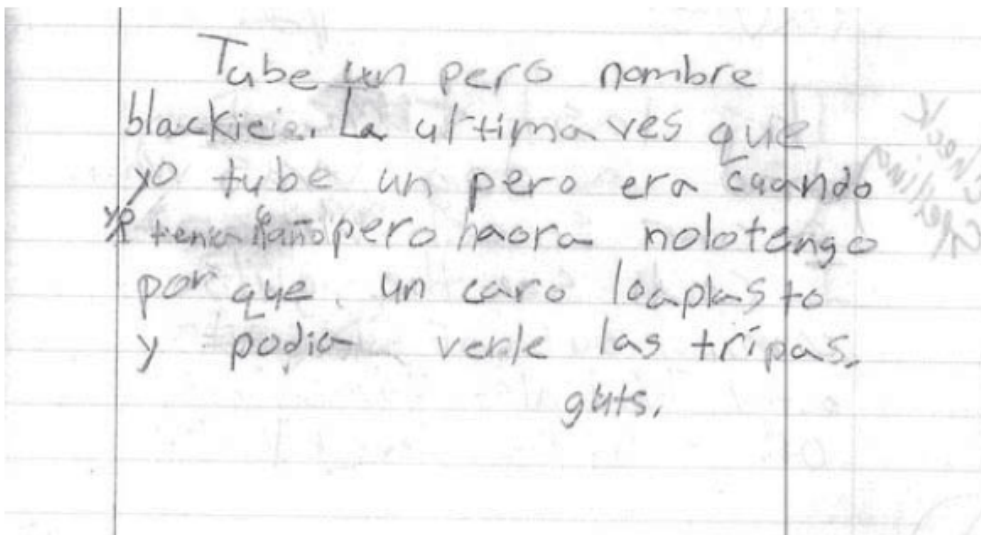 Tube un pero nombre
blackie. La ultima ves que
yo tube un pero era cuando
yo tenia año pero haora nolotengo
por que un caro loaplasto
y podia verle las tripas.
guts.